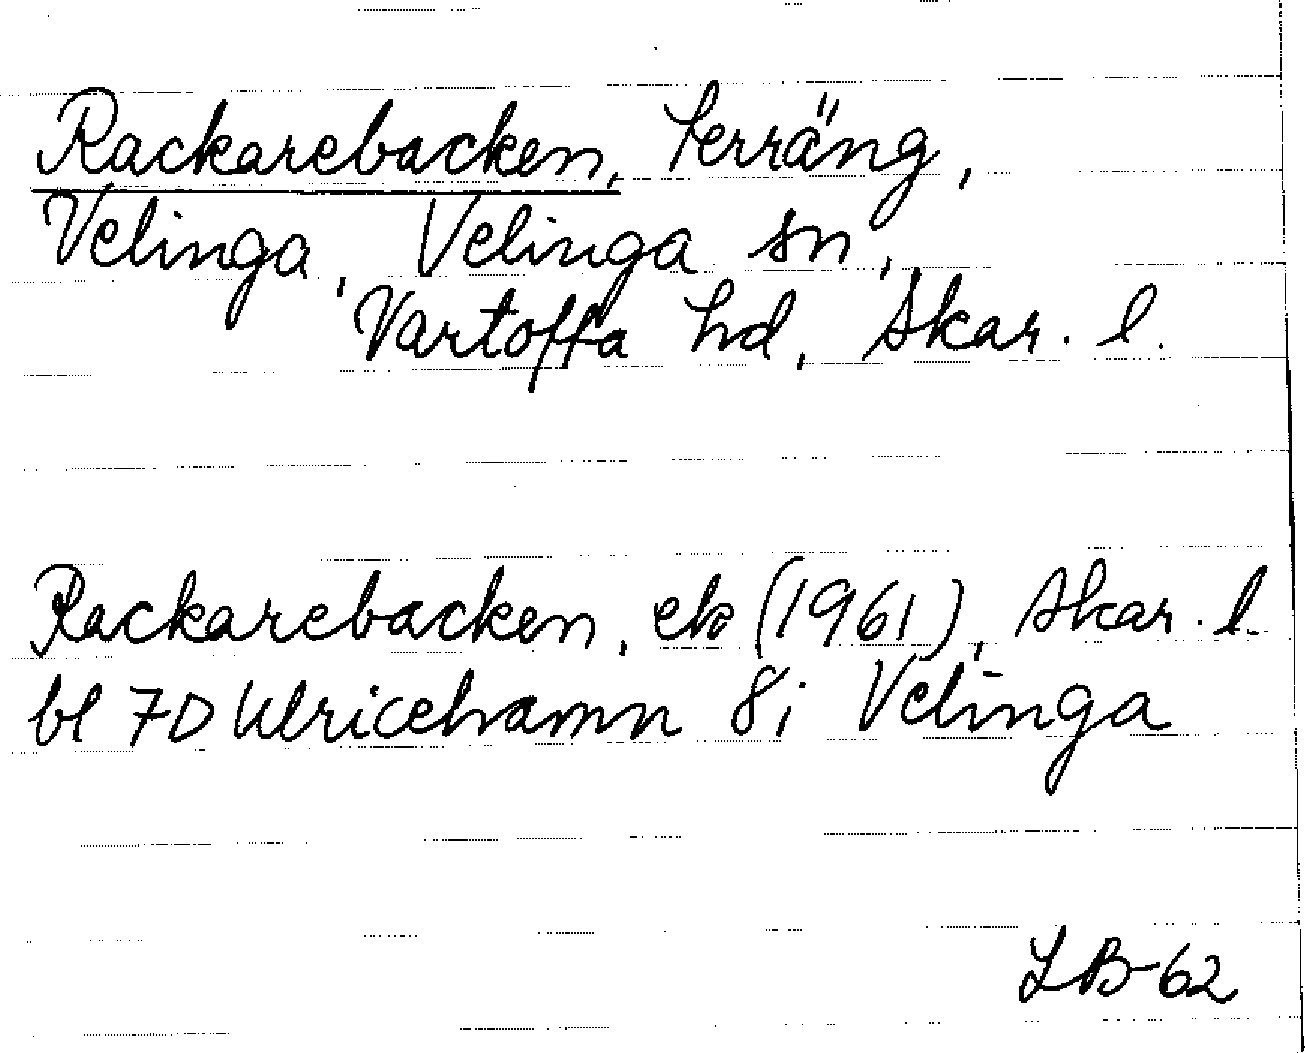 Rackarebacken, terräng,
Velinga, Velinga sn,
Vartofta hd, Skar. l.
Rackarebacken, ek (1961), Skar. l.
bl 7D Ulricehamn 8i Velinga
LB-62